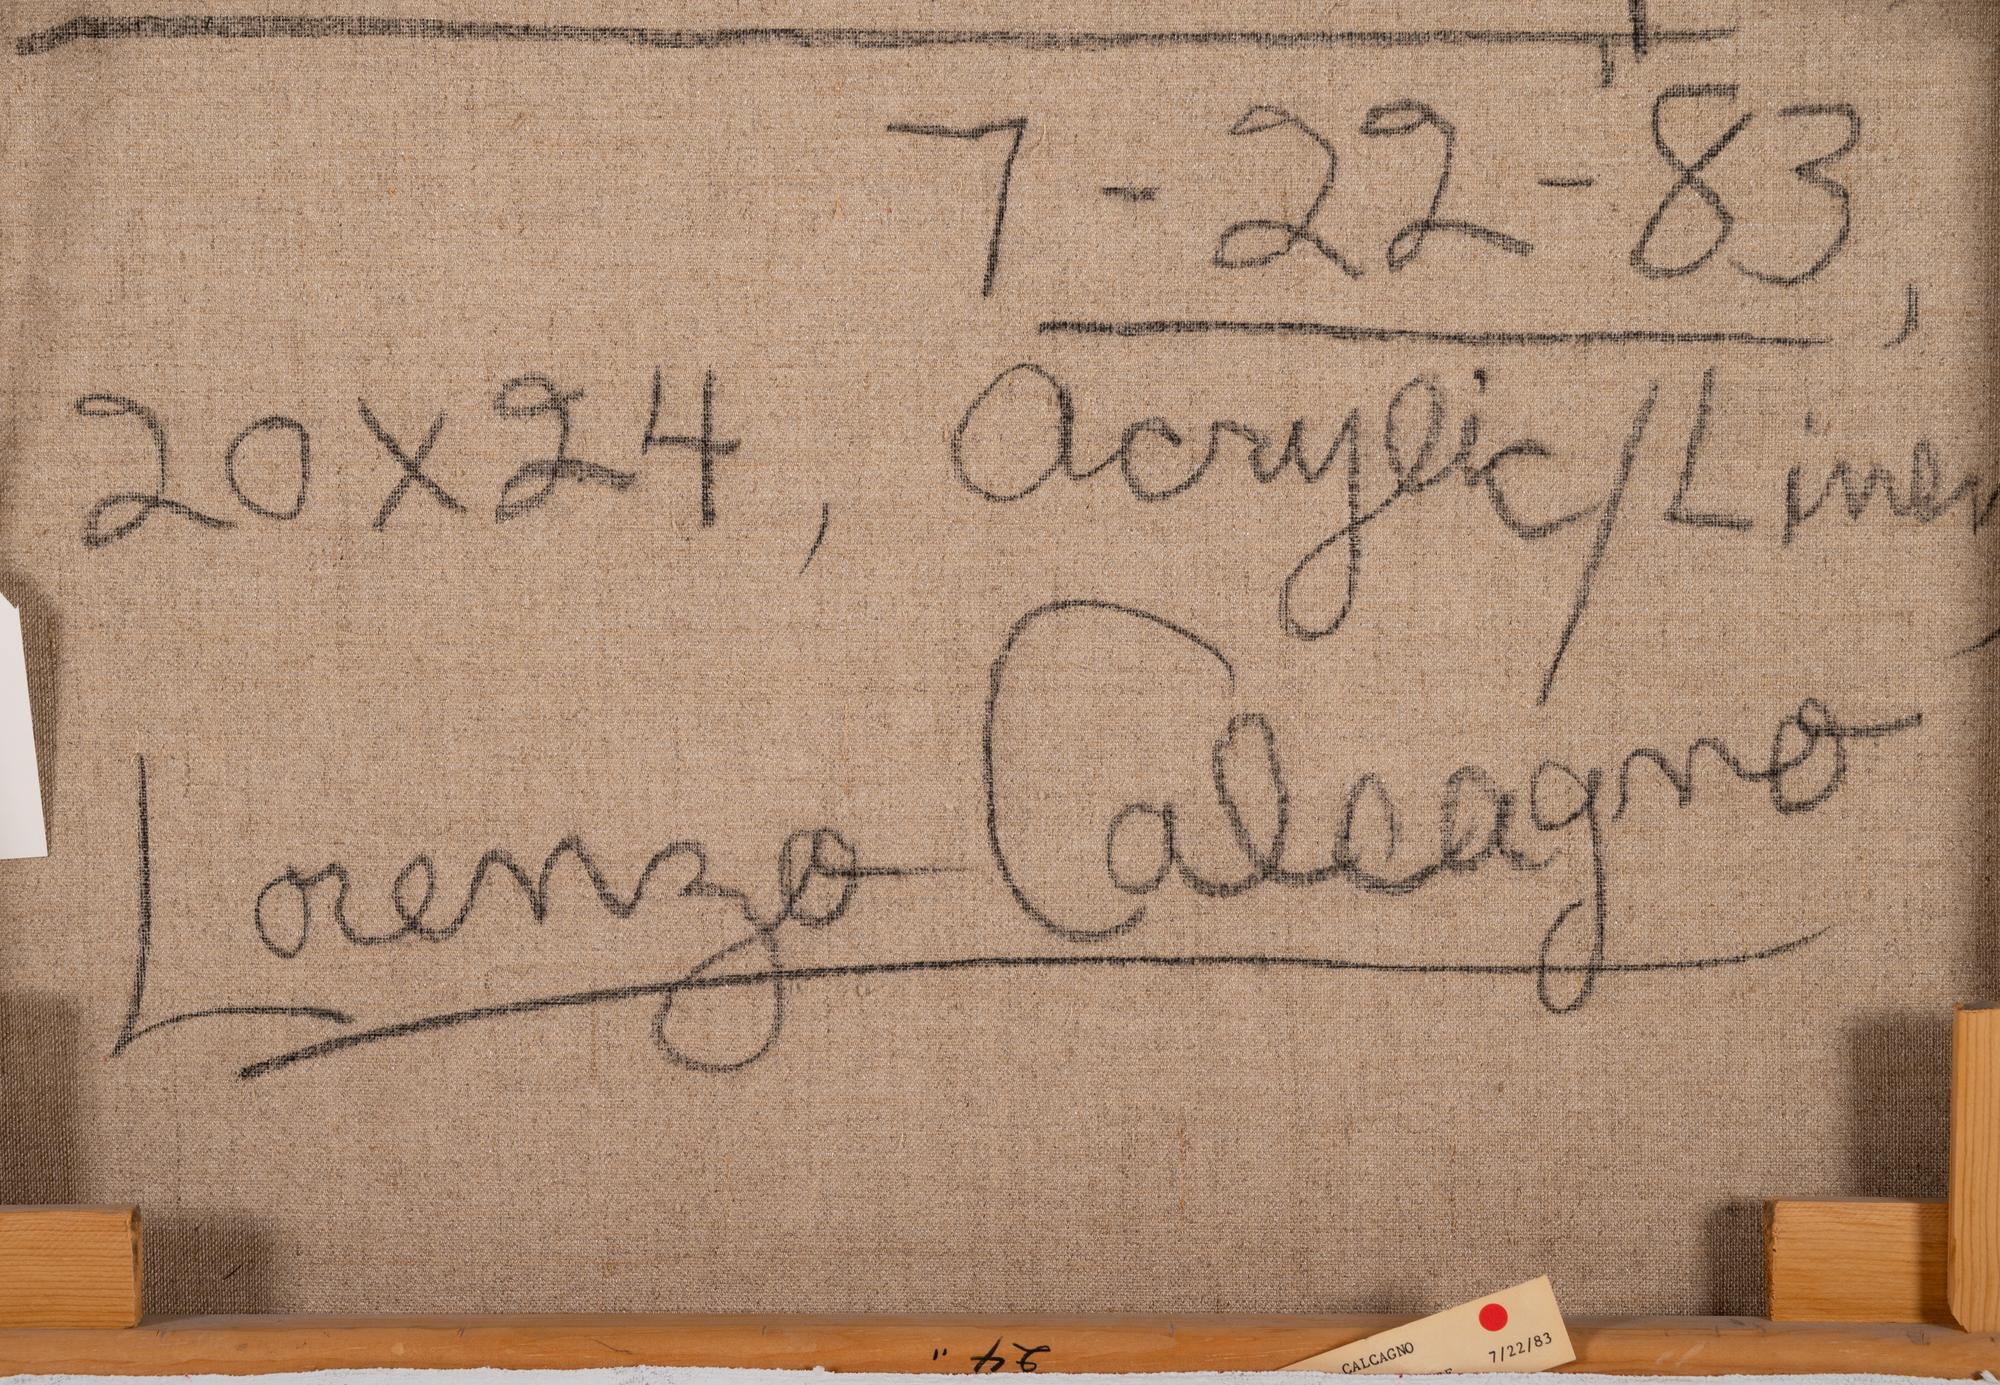 7-22-83,
20x24, Acrylic/Linen,
Lorenzo Calcagno
24"
CALCAGNO
7/22/83